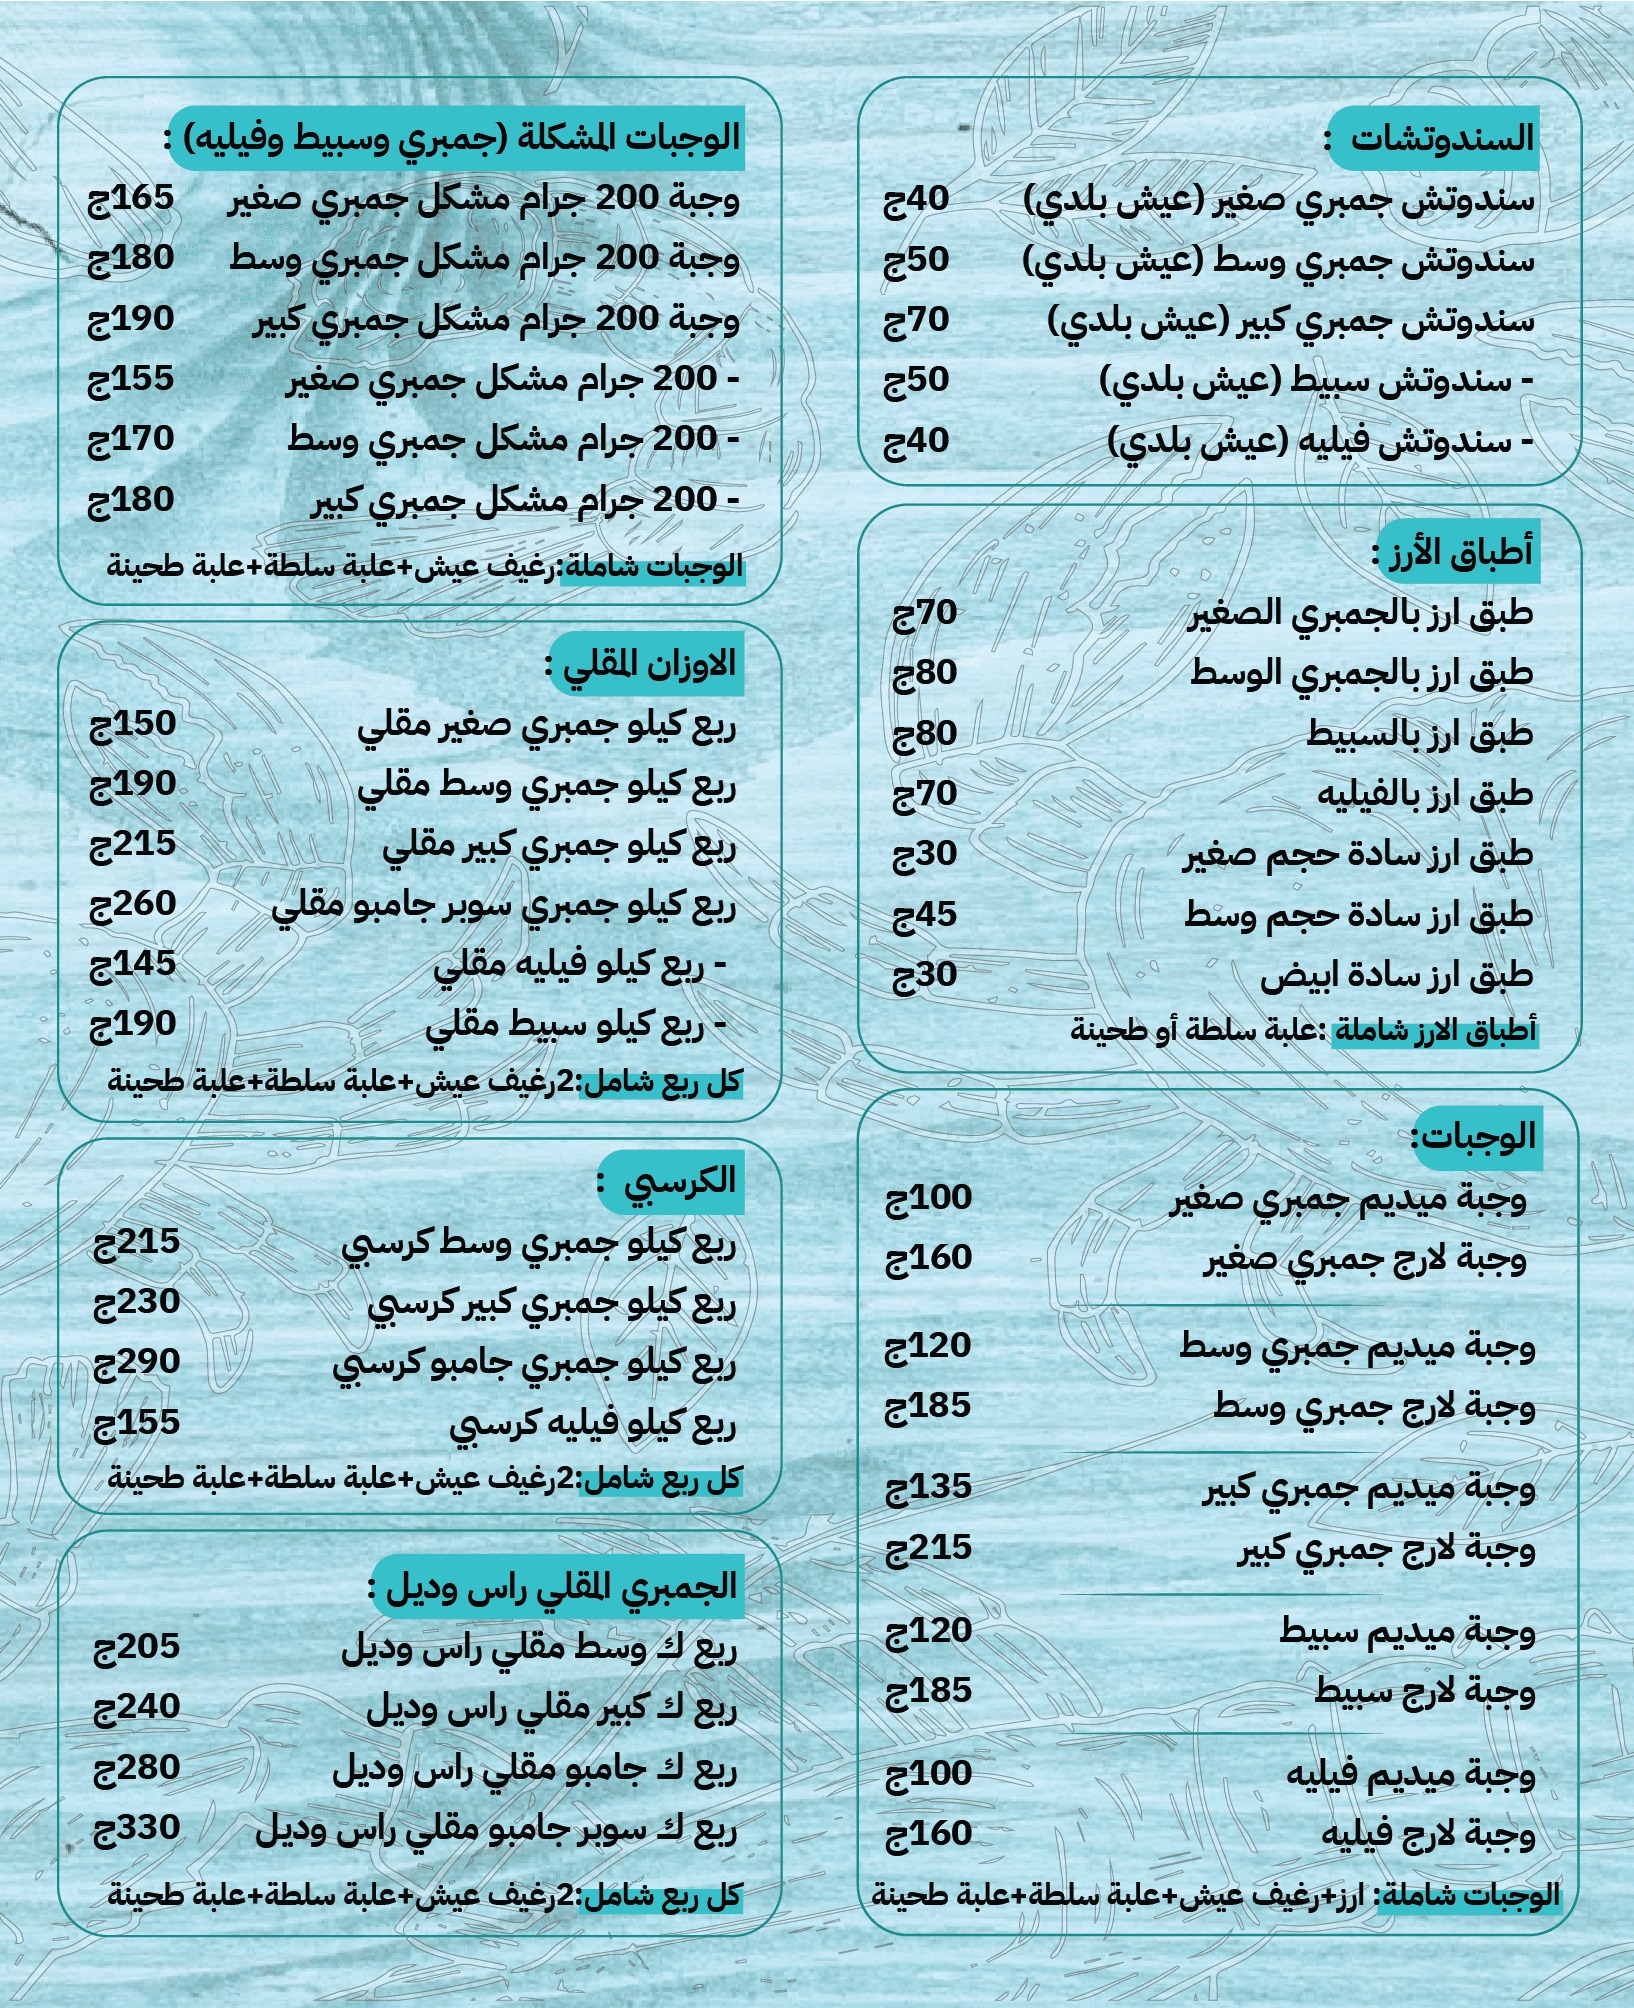 السندوتشات :
سندوتش جمبري صغير (عيش بلدي) 40ج
سندوتش جمبري وسط (عيش بلدي) 50ج
سندوتش جمبري كبير (عيش بلدي) 70ج
- سندوتش سبيط (عيش بلدي) 50ج
- سندوتش فيليه (عيش بلدي) 40ج
أطباق الأرز :
طبق ارز بالجمبري الصغير 70ج
طبق ارز بالجمبري الوسط 80ج
طبق ارز بالسبيط 80ج
طبق ارز بالفيليه 70ج
طبق ارز سادة حجم صغير 30ج
طبق ارز سادة حجم وسط 45ج
طبق ارز سادة ابيض 30ج
أطباق الارز شاملة :علبة سلطة أو طحينة
الوجبات:
وجبة ميديم جمبري صغير 100ج
وجبة لارج جمبري صغير 160ج
وجبة ميديم جمبري وسط 120ج
وجبة لارج جمبري وسط 185ج
وجبة ميديم جمبري كبير 135ج
وجبة لارج جمبري كبير 215ج
وجبة ميديم سبيط 120ج
وجبة لارج سبيط 185ج
وجبة ميديم فيليه 100ج
وجبة لارج فيليه 160ج
الوجبات شاملة: ارز+رغيف عيش+علبة سلطة+علبة طحينة
الوجبات المشكلة (جمبري وسبيط وفيليه) :
وجبة 200 جرام مشكل جمبري صغير 165ج
وجبة 200 جرام مشكل جمبري وسط 180ج
وجبة 200 جرام مشكل جمبري كبير 190ج
- 200 جرام مشكل جمبري صغير 155ج
- 200 جرام مشكل جمبري وسط 170ج
- 200 جرام مشكل جمبري كبير 180ج
الوجبات شاملة:رغيف عيش+علبة سلطة+علبة طحينة
الاوزان المقلي :
ربع كيلو جمبري صغير مقلي 150ج
ربع كيلو جمبري وسط مقلي 190ج
ربع كيلو جمبري كبير مقلي 215ج
ربع كيلو جمبري سوبر جامبو مقلي 260ج
- ربع كيلو فيليه مقلي 145ج
- ربع كيلو سبيط مقلي 190ج
كل ربع شامل:2رغيف عيش+علبة سلطة+علبة طحينة
الكرسبي :
ربع كيلو جمبري وسط كرسبي 215ج
ربع كيلو جمبري كبير كرسبي 230ج
ربع كيلو جمبري جامبو كرسبي 290ج
ربع كيلو فيليه كرسبي 155ج
كل ربع شامل:2رغيف عيش+علبة سلطة+علبة طحينة
الجمبري المقلي راس وديل :
ربع ك وسط مقلي راس وديل 205ج
ربع ك كبير مقلي راس وديل 240ج
ربع ك جامبو مقلي راس وديل 280ج
ربع ك سوبر جامبو مقلي راس وديل 330ج
كل ربع شامل:2رغيف عيش+علبة سلطة+علبة طحينة